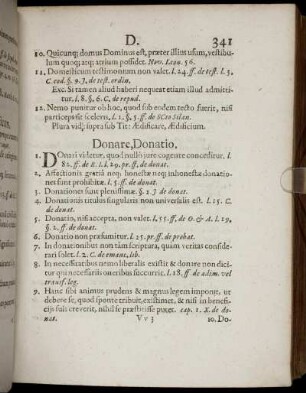 D. 341
10. Quicunq; domus Dominus est, præter illius usum, vestibu-
lum quoq; atq; atrium possidet. Nov. Leon. 56.
11. Domesticum testimonium non valet. l. 24. ff. de test. l. 3.
C. eod. §. 9. J. de test. ordin.
Exc. Si tamen aliud haberi nequeat etiam illud admitti-
tur. l. 8. §. 6. C. de repud.
12. Nemo punitur ob hoc, quod sub eodem tecto fuerit, nisi
particeps sit sceleris, l. 1. §. 5. ff. de SCto Silan.
Plura vid; supra sub Tit: Ædificare, Ædificium.
Donare, Donatio.
1. Donari videtur, quod nullo jure cogente conceditur. l.
82. ff. de R. I. l. 29. pr. ff. de donat.
2. Affectionis gratiâ neq; honestæ neq; inhonestæ donatio-
nes sunt prohibitæ. l. 5. ff. de donat.
3. Donationes sunt plenissimæ. §. 2. J. de donat.
4. Donationis titulus singularis non universalis est. l. 15. C.
de donat.
5. Donatio, nisi accepta, non valet. l. 55. ff. de O. & A. l. 19,
§. 2. ff. de donat.
6. Donatio non præsumitur. l. 25. pr. ff. de probat.
7. In donationibus non tam scriptura, quam veritas conside-
rari solet. l. 2. C. de emanc. lib.
8. In necessitatibus nemo liberalis existit & donare non dici-
tur qui necessariis oneribus succurrit. l. 18. ff. de adim. vel
transf. leg.
9. Hanc sibi animus prudens & magnus legem imponit, ut
debere se, quod sponte tribuit, existimet, & nisi in benefi-
cijs suis creverit, nihil se præstitisse putet. cap. 1. X. de do-
nat. Vv 3 10. Do-